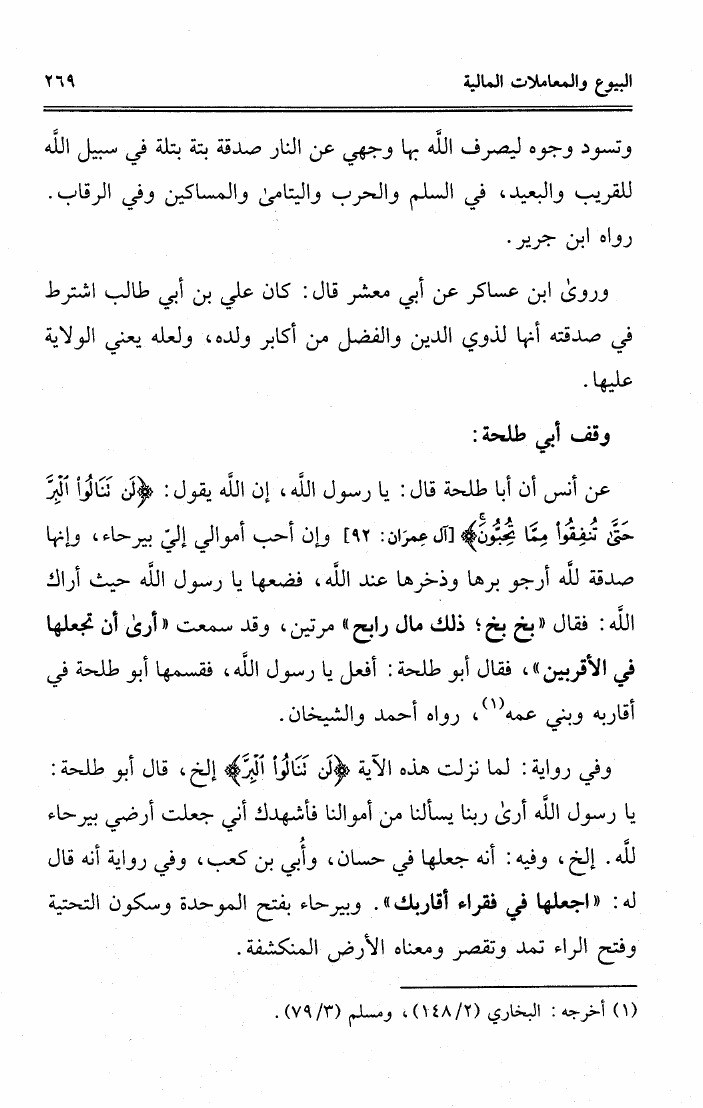 البيوع والمعاملات المالية ٢٦٩
وتسود وجوه ليصرف اللَّه بها وجهي عن النار صدقة بتة بتلة في سبيل اللَّه
للقريب والبعيد، في السلم والحرب واليتامىٰ والمساكين وفي الرقاب.
رواه ابن جرير.
وروىٰ ابن عساكر عن أبي معشر قال: كان علي بن أبي طالب اشترط
في صدقته أنها لذوي الدين والفضل من أكابر ولده، ولعله يعني الولاية
عليها.
وقف أبي طلحة:
عن أنس أن أبا طلحة قال: يا رسول اللَّه، إن اللَّه يقول: ﴿لَن تَنَالُواْ ٱلۡبِرَّ
حَتَّىٰ تُنفِقُواْ مِمَّا تُحِبُّونَۚ﴾ [آل عِمرَان: ٩٢] وإن أحب أموالي إليّ بيرحاء، وإنها
صدقة للَّه أرجو برها وذخرها عند اللَّه، فضعها يا رسول اللَّه حيث أراك
اللَّه: فقال «بخ بخ؛ ذلك مال رابح» مرتين، وقد سمعت «أرىٰ أن تجعلها
في الأقربين»، فقال أبو طلحة: أفعل يا رسول اللَّه، فقسمها أبو طلحة في
أقاربه وبني عمه(١)، رواه أحمد والشيخان.
وفي رواية: لما نزلت هذه الآية ﴿لَن تَنَالُواْ ٱلۡبِرَّ﴾ إلخ، قال أبو طلحة:
يا رسول اللَّه أرىٰ ربنا يسألنا من أموالنا فأشهدك أني جعلت أرضي بيرحاء
للَّه. إلخ، وفيه: أنه جعلها في حسان، وأُبي بن كعب، وفي رواية أنه قال
له: «اجعلها في فقراء أقاربك». وبيرحاء بفتح الموحدة وسكون التحتية
وفتح الراء تمد وتقصر ومعناه الأرض المنكشفة.
(١) أخرجه: البخاري (٢/ ١٤٨)، ومسلم (٣/ ٧٩).